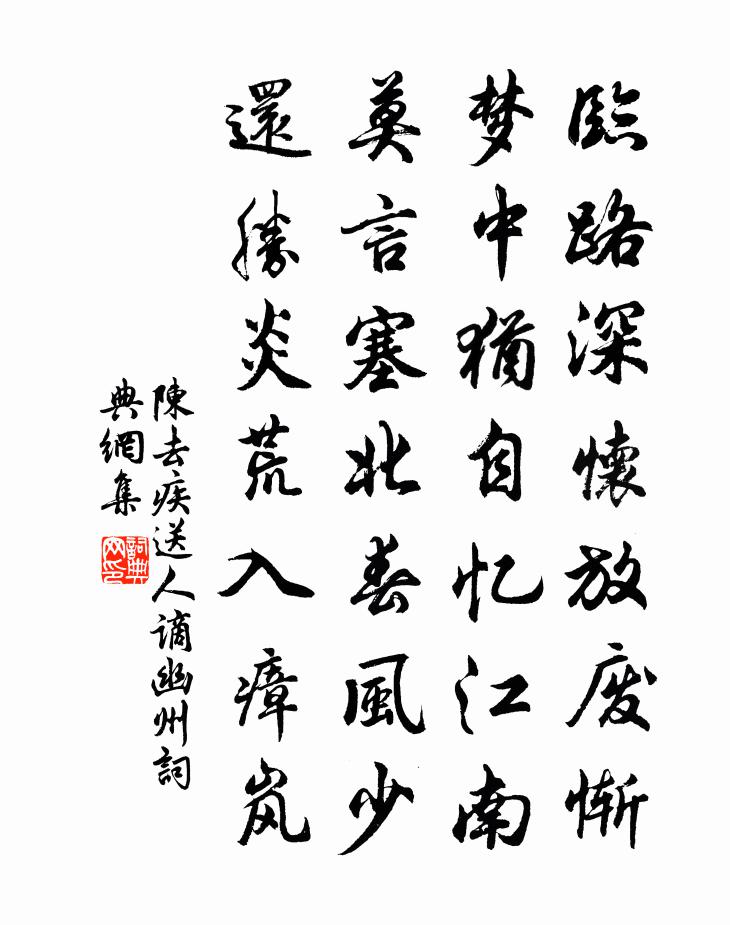 臨路深懷放废慚
梦中猶自忆江南
莫言塞北春風少
還勝炎荒入瘴岚
陳去疾送人謫幽州詞
典網集
詞典
网印